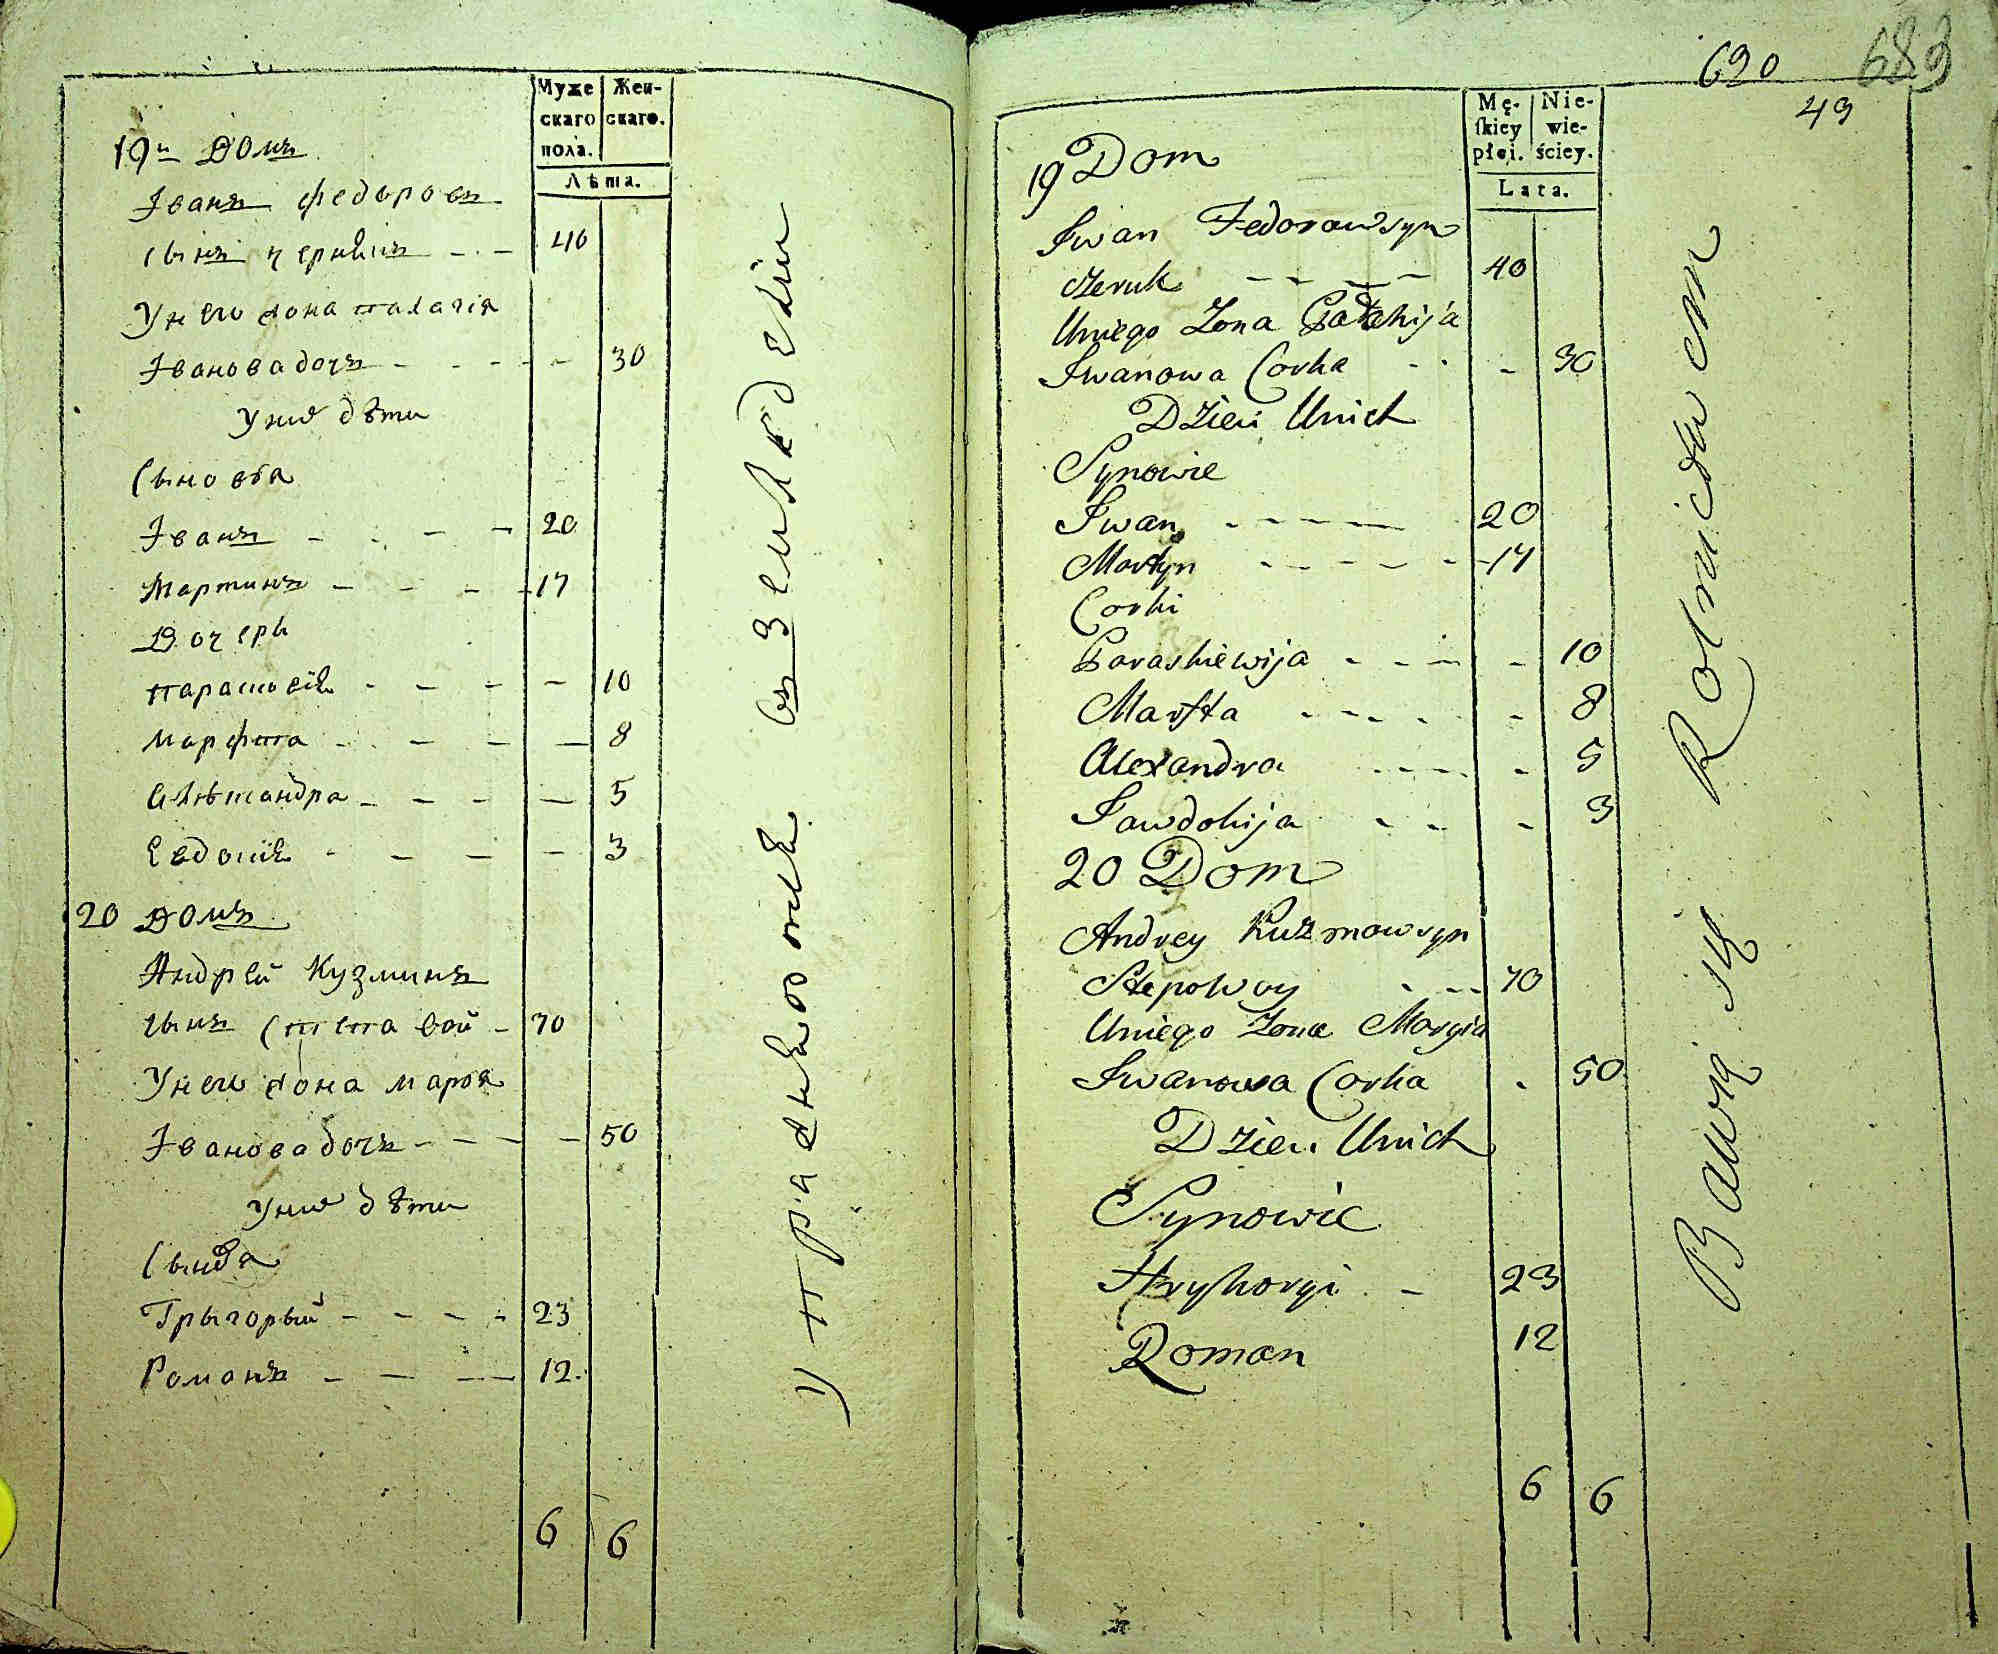 Муже Жен-
скаго скаго.
пола.
Лѣта.
19й Домъ
Іванъ Федоровъ
сынъ 40
У него жона Палагія
Іванова дочъ - - - - 30
У них дѣти
Сыновья
Іванъ - - - - 20
Мартинъ - - - - 17
Дочеры
Парасковія - - - - 10
Марфта - - - - 8
Алѣксандра - - - - 5
Евдокія - - - - 3
20 Домъ
Андрей Кузминъ
сынъ Степовой - 70
У него жона Маря
Іванова дочъ - - - - 50
У них дѣти
Сыновя
Грыгорый - - - - 23
Романъ - - - - 12.
6 6
Упражняютца въ Земледелии
690 689
49
Mę- Nie-
skiey wie-
płci. ściey.
Lata.
19 Dom
Iwan Fedorow syn
- - - - 40
Uniego Zona Pałahija
Iwanowa Corka - - - 30
Dzieci Unich
Synowie
Iwan - - - - 20
Martyn - - - - - 17
Corki
Paraskiewija - - - - 10
Marfta - - - - - 8
Alexandra - - - - - 5
Iawdokija - - - 3
20 Dom
Andrey Kuzmow syn
Stepowoy - - - 70
Uniego Zona Maryia
Iwanowa Corka - 50
Dzieci Unich
Synowie
Hryhoryi - 23
Roman 12
6 6
Bawią się Rolnictwem